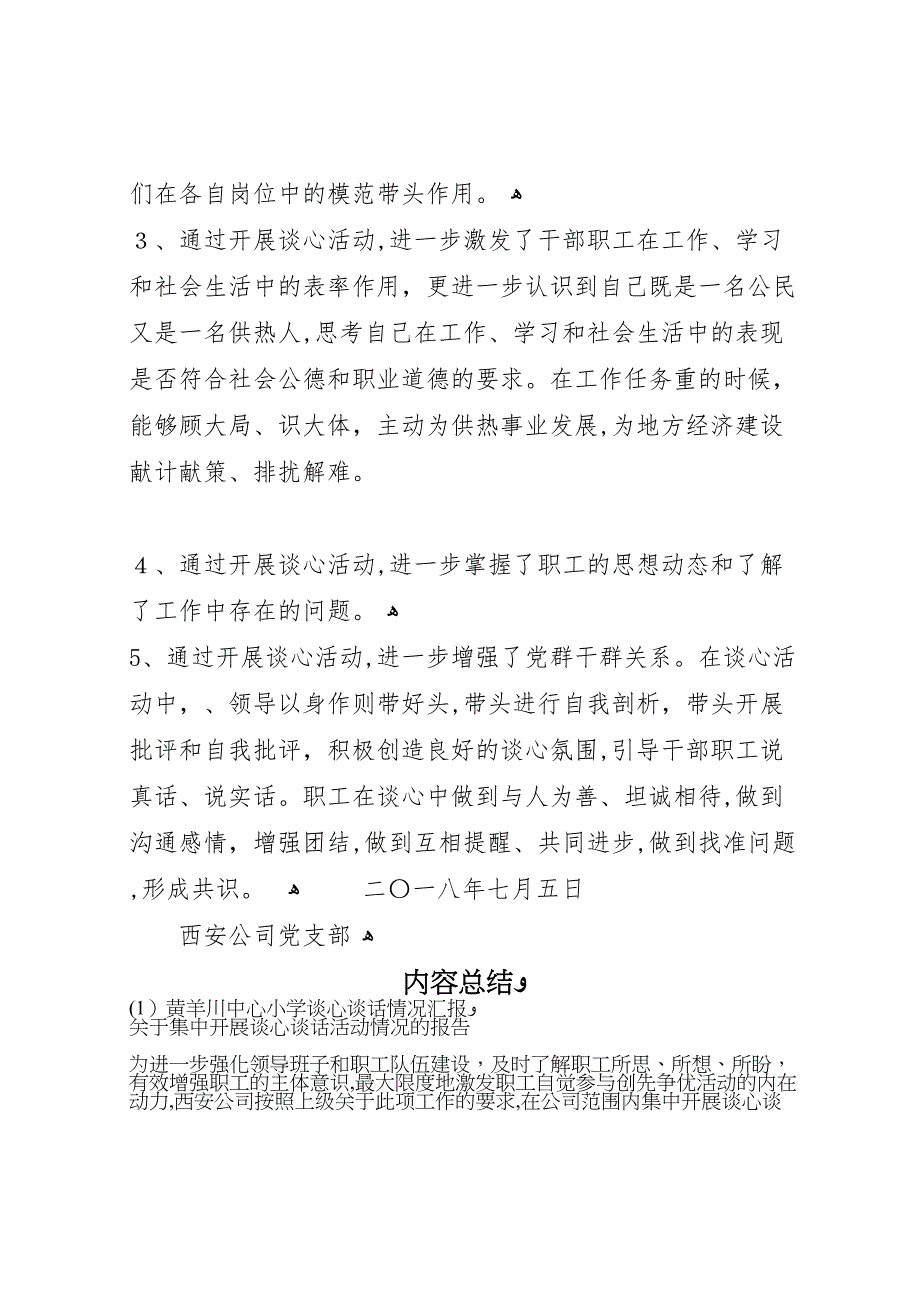 们在各自岗位中的模范带头作用。 ﻫ
３、通过开展谈心活动,进一步激发了干部职工在工作、学习
和社会生活中的表率作用，更进一步认识到自己既是一名公民
又是一名供热人,思考自己在工作、学习和社会生活中的表现
是否符合社会公德和职业道德的要求。在工作任务重的时候，
能够顾大局、识大体，主动为供热事业发展,为地方经济建设
献计献策、排扰解难。
４、通过开展谈心活动,进一步掌握了职工的思想动态和了解
了工作中存在的问题。 ﻫ
5、通过开展谈心活动,进一步增强了党群干群关系。在谈心活
动中，、领导以身作则带好头,带头进行自我剖析，带头开展
批评和自我批评，积极创造良好的谈心氛围,引导干部职工说
真话、说实话。职工在谈心中做到与人为善、坦诚相待,做到
沟通感情，增强团结,做到互相提醒、共同进步,做到找准问题
,形成共识。 ﻫ 二〇一八年七月五日
西安公司党支部 ﻫ
内容总结ﻭ
(1）黄羊川中心小学谈心谈话情况汇报ﻭ
关于集中开展谈心谈话活动情况的报告
为进一步强化领导班子和职工队伍建设，及时了解职工所思、所想、所盼，
有效增强职工的主体意识,最大限度地激发职工自觉参与创先争优活动的内在
动力,西安公司按照上级关于此项工作的要求,在公司范围内集中开展谈心谈